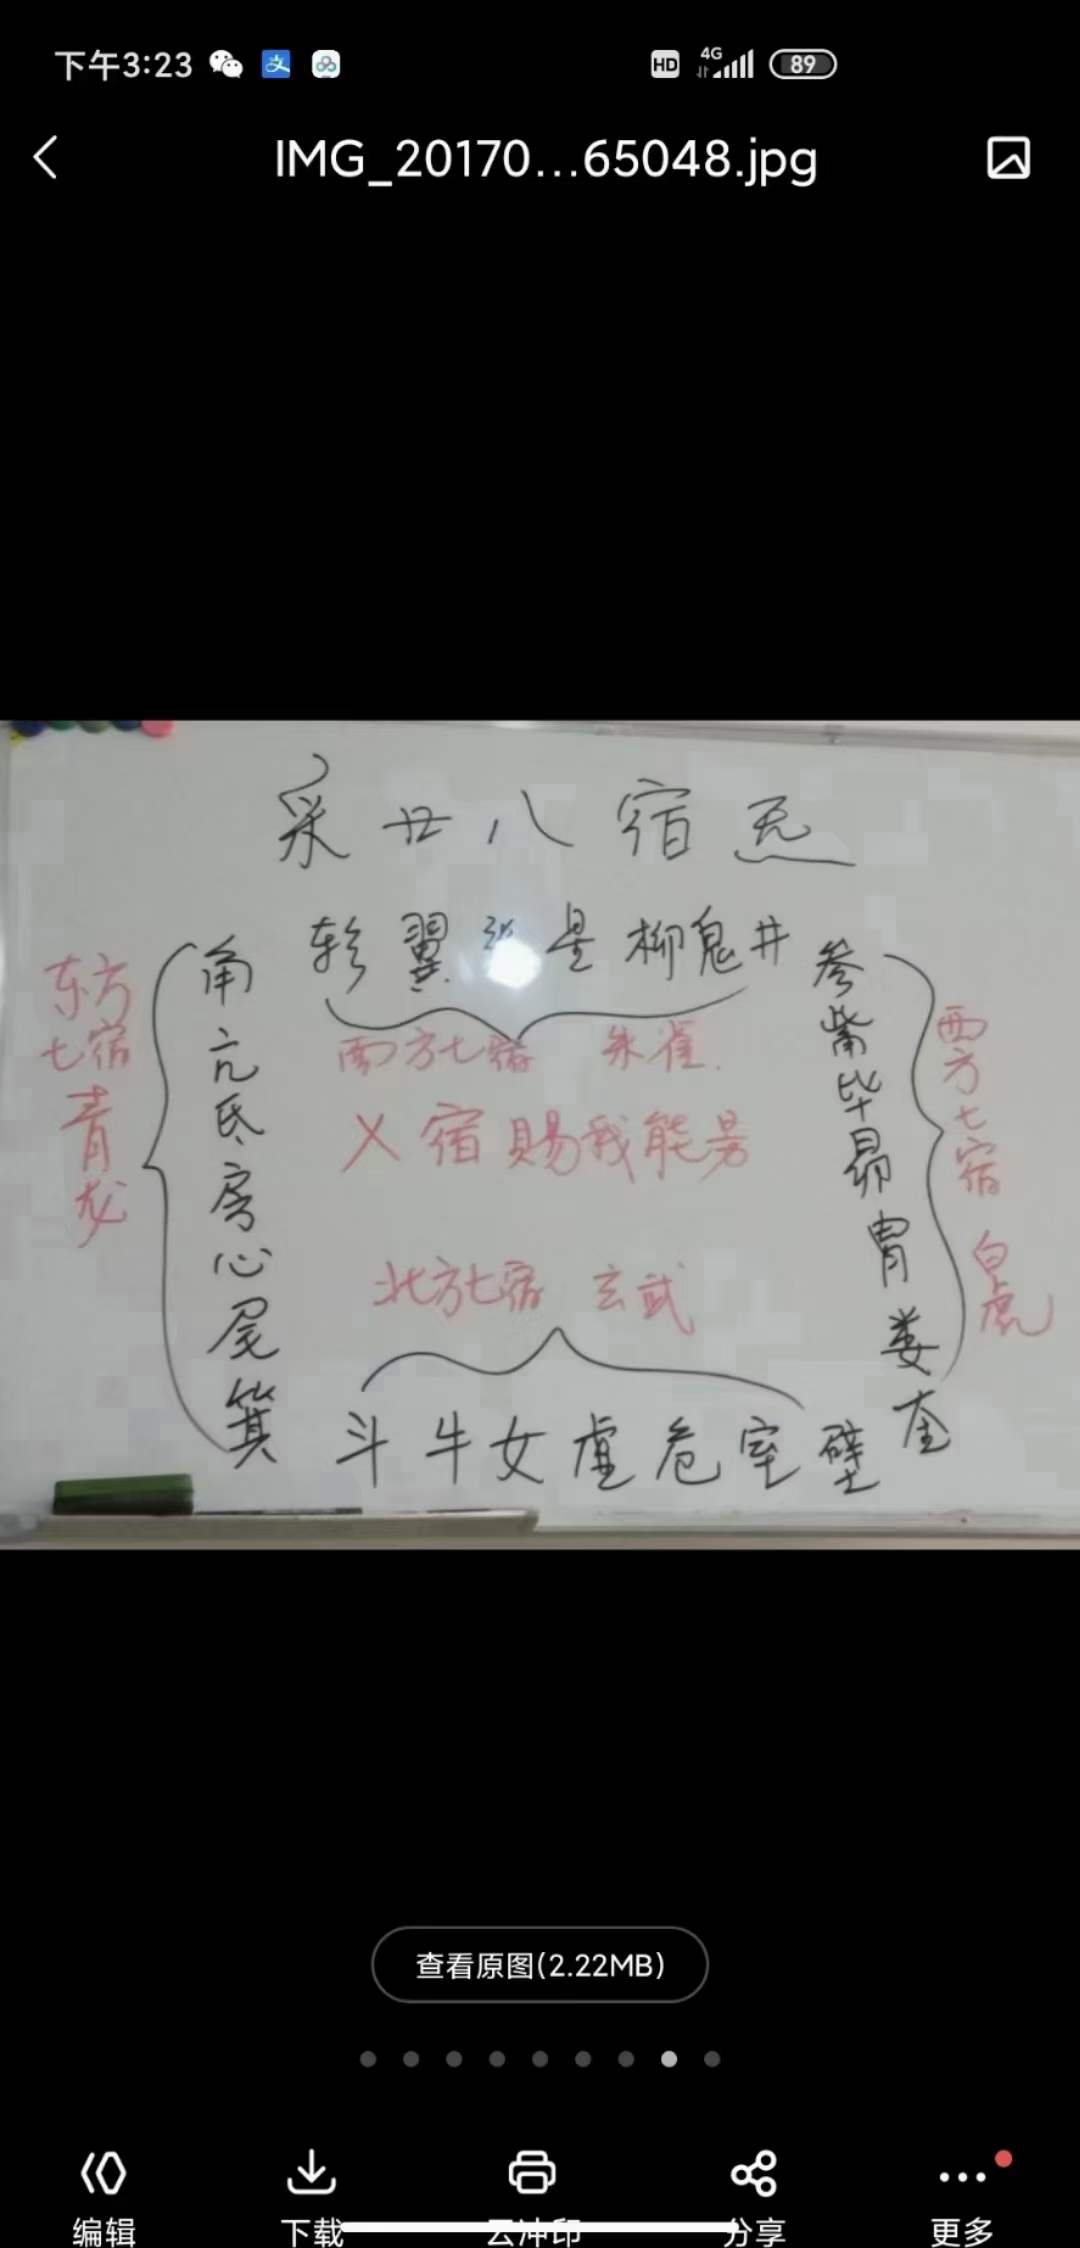 下午3:23
HD 4G 89
IMG_20170...65048.jpg
采廿八宿炁
轸翼张星柳鬼井
南方七宿 朱雀
东方
七宿
青
龙
角
亢
氐
房
心
尾
箕
X宿賜我能
北方七宿 玄武
斗牛女虚危室壁
参
觜
毕
昴
胃
娄
奎
西
方
七
宿
白
虎
查看原图(2.22MB)
编辑
下载
云冲印
分享
更多